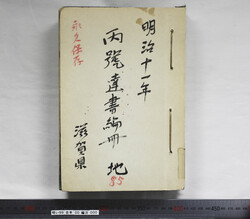 明治十一年
丙號達書編冊 地
55
滋賀県
永久保存